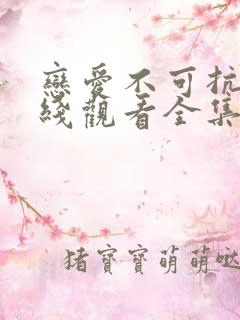 戀愛不可抗
綫觀看全集
猪寶寶萌萌噠